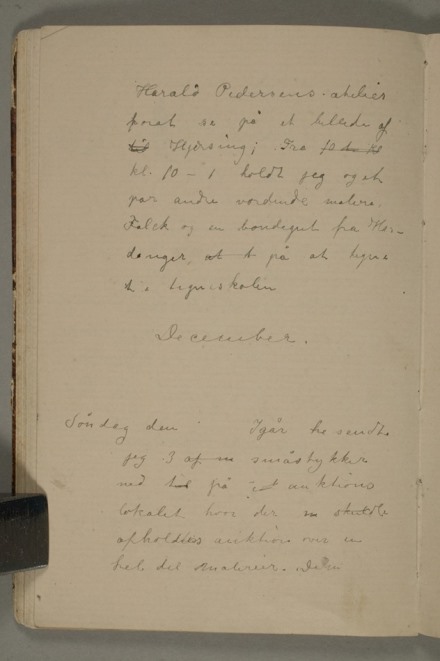 Harald Pedersens-atelier
forat se på et billede af
til Hjersing; Fra
kl. 10 – 1 holdt jeg og et
par andre vordende malere.
Falck og en bondegut fra Har-
danger at på at tegne
i tegneskolen
December.
Søndag den Igår besendte
jeg 3 af småstykker
ned til på et auktions
lokalet hvor der skulde
opholdtes auktion over en
hel del malerier. Den